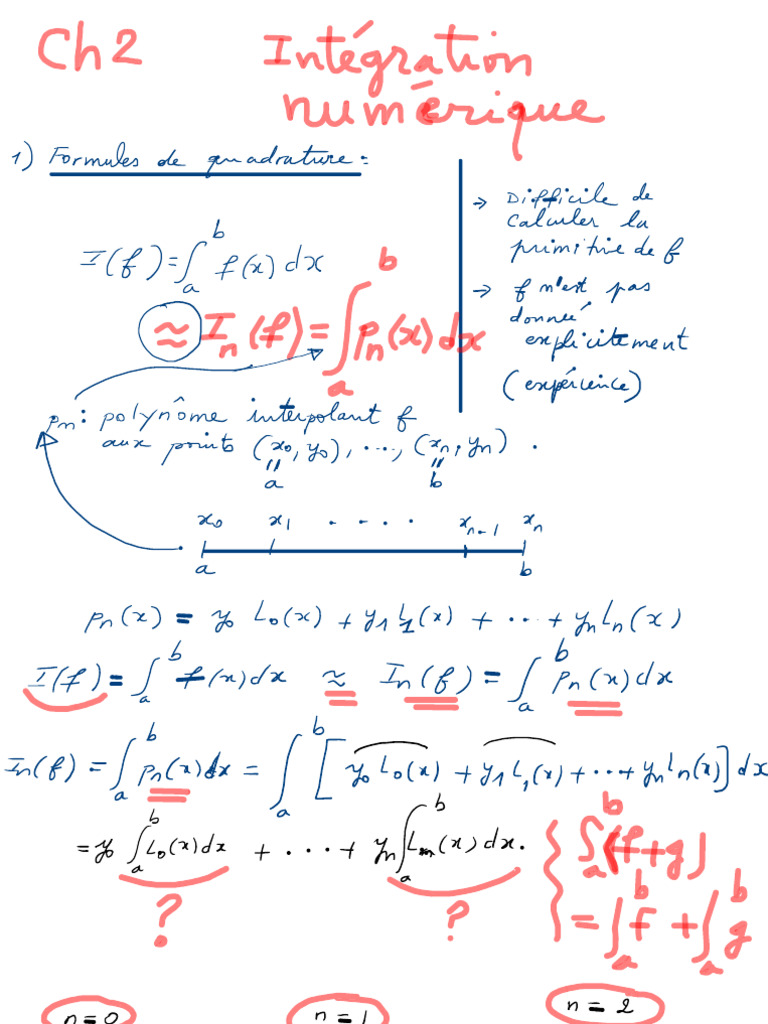 Ch2 Intégration
numérique
1) Formules de quadrature:
I(f) = ∫_a^b f(x) dx
≈ I_n(f) = ∫_a^b p_n(x) dx
→ Difficile de
calculer la
primitive de f
→ f n'est pas
donnée
explicitement
(expérience)
p_n: polynôme interpolant f
aux points (x_0, y_0), ..., (x_n, y_n).
= a = b
x_0 x_1 . . . . . x_{n-1} x_n
a b
p_n(x) = y_0 L_0(x) + y_1 L_1(x) + ... + y_n L_n(x)
I(f) = ∫_a^b f(x) dx ≈ I_n(f) = ∫_a^b p_n(x) dx
I_n(f) = ∫_a^b p_n(x) dx = ∫_a^b [y_0 L_0(x) + y_1 L_1(x) + ... + y_n L_n(x)] dx
= y_0 ∫_a^b L_0(x) dx + ... + y_n ∫_a^b L_n(x) dx.
? ?
∫_a^b (f + g)
= ∫_a^b f + ∫_a^b g
n = 0 n = 1 n = 2